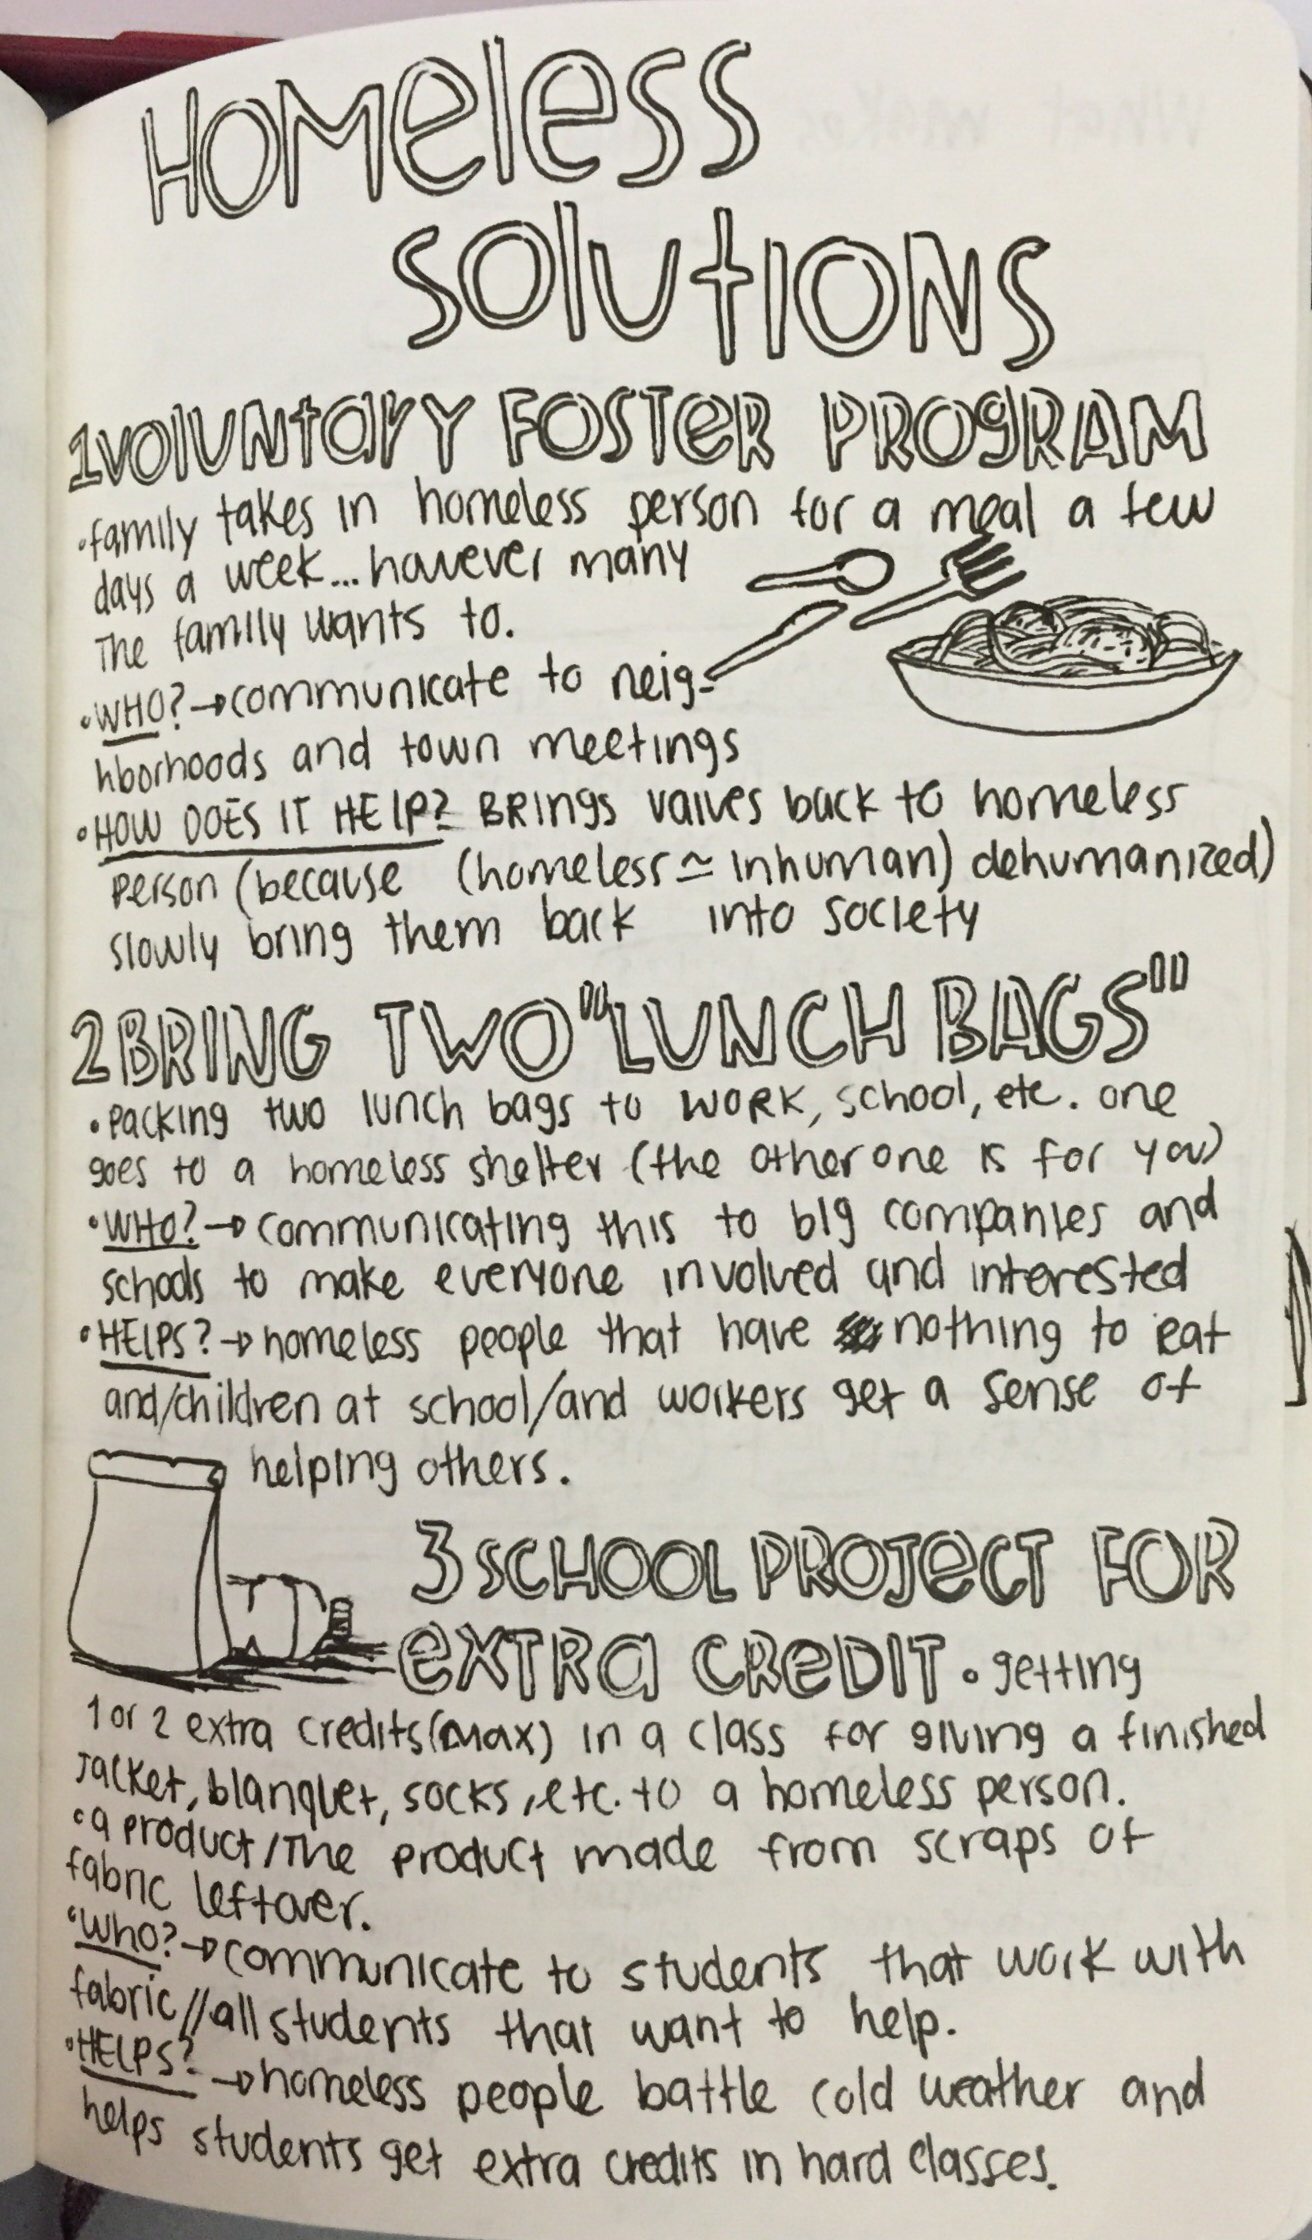 HOMeless
SOlUtIONS
1 VOlUNtarY FOSTeR PROgRAM
•family takes in homeless person for a meal a few
days a week... however many
The family wants to.
•WHO? → communicate to neig-
hborhoods and town meetings
•HOW DOES IT HELP? BRings values back to homeless
person (because (homeless ≃ inhuman) dehumanized)
slowly bring them back into society
2 BRING TWO "LUNCH BAGS"
•packing two lunch bags to WORK, school, etc. one
goes to a homeless shelter (the other one is for you)
•WHO? → communicating this to big companies and
schools to make everyone involved and interested
•HELPS? → homeless people that have nothing to eat
and/children at school/and workers get a sense of
helping others.
3 SCHOOL PROJeCT FOR
eXTRa CReDIT • getting
1 or 2 extra credits (max) in a class for giving a finished
Jacket, blanquet, socks, etc. to a homeless person.
•a product/The product made from scraps of
fabric leftover.
•Who? → communicate to students that work with
fabric//all students that want to help.
•HELPS? → homeless people battle cold weather and
helps students get extra credits in hard classes.